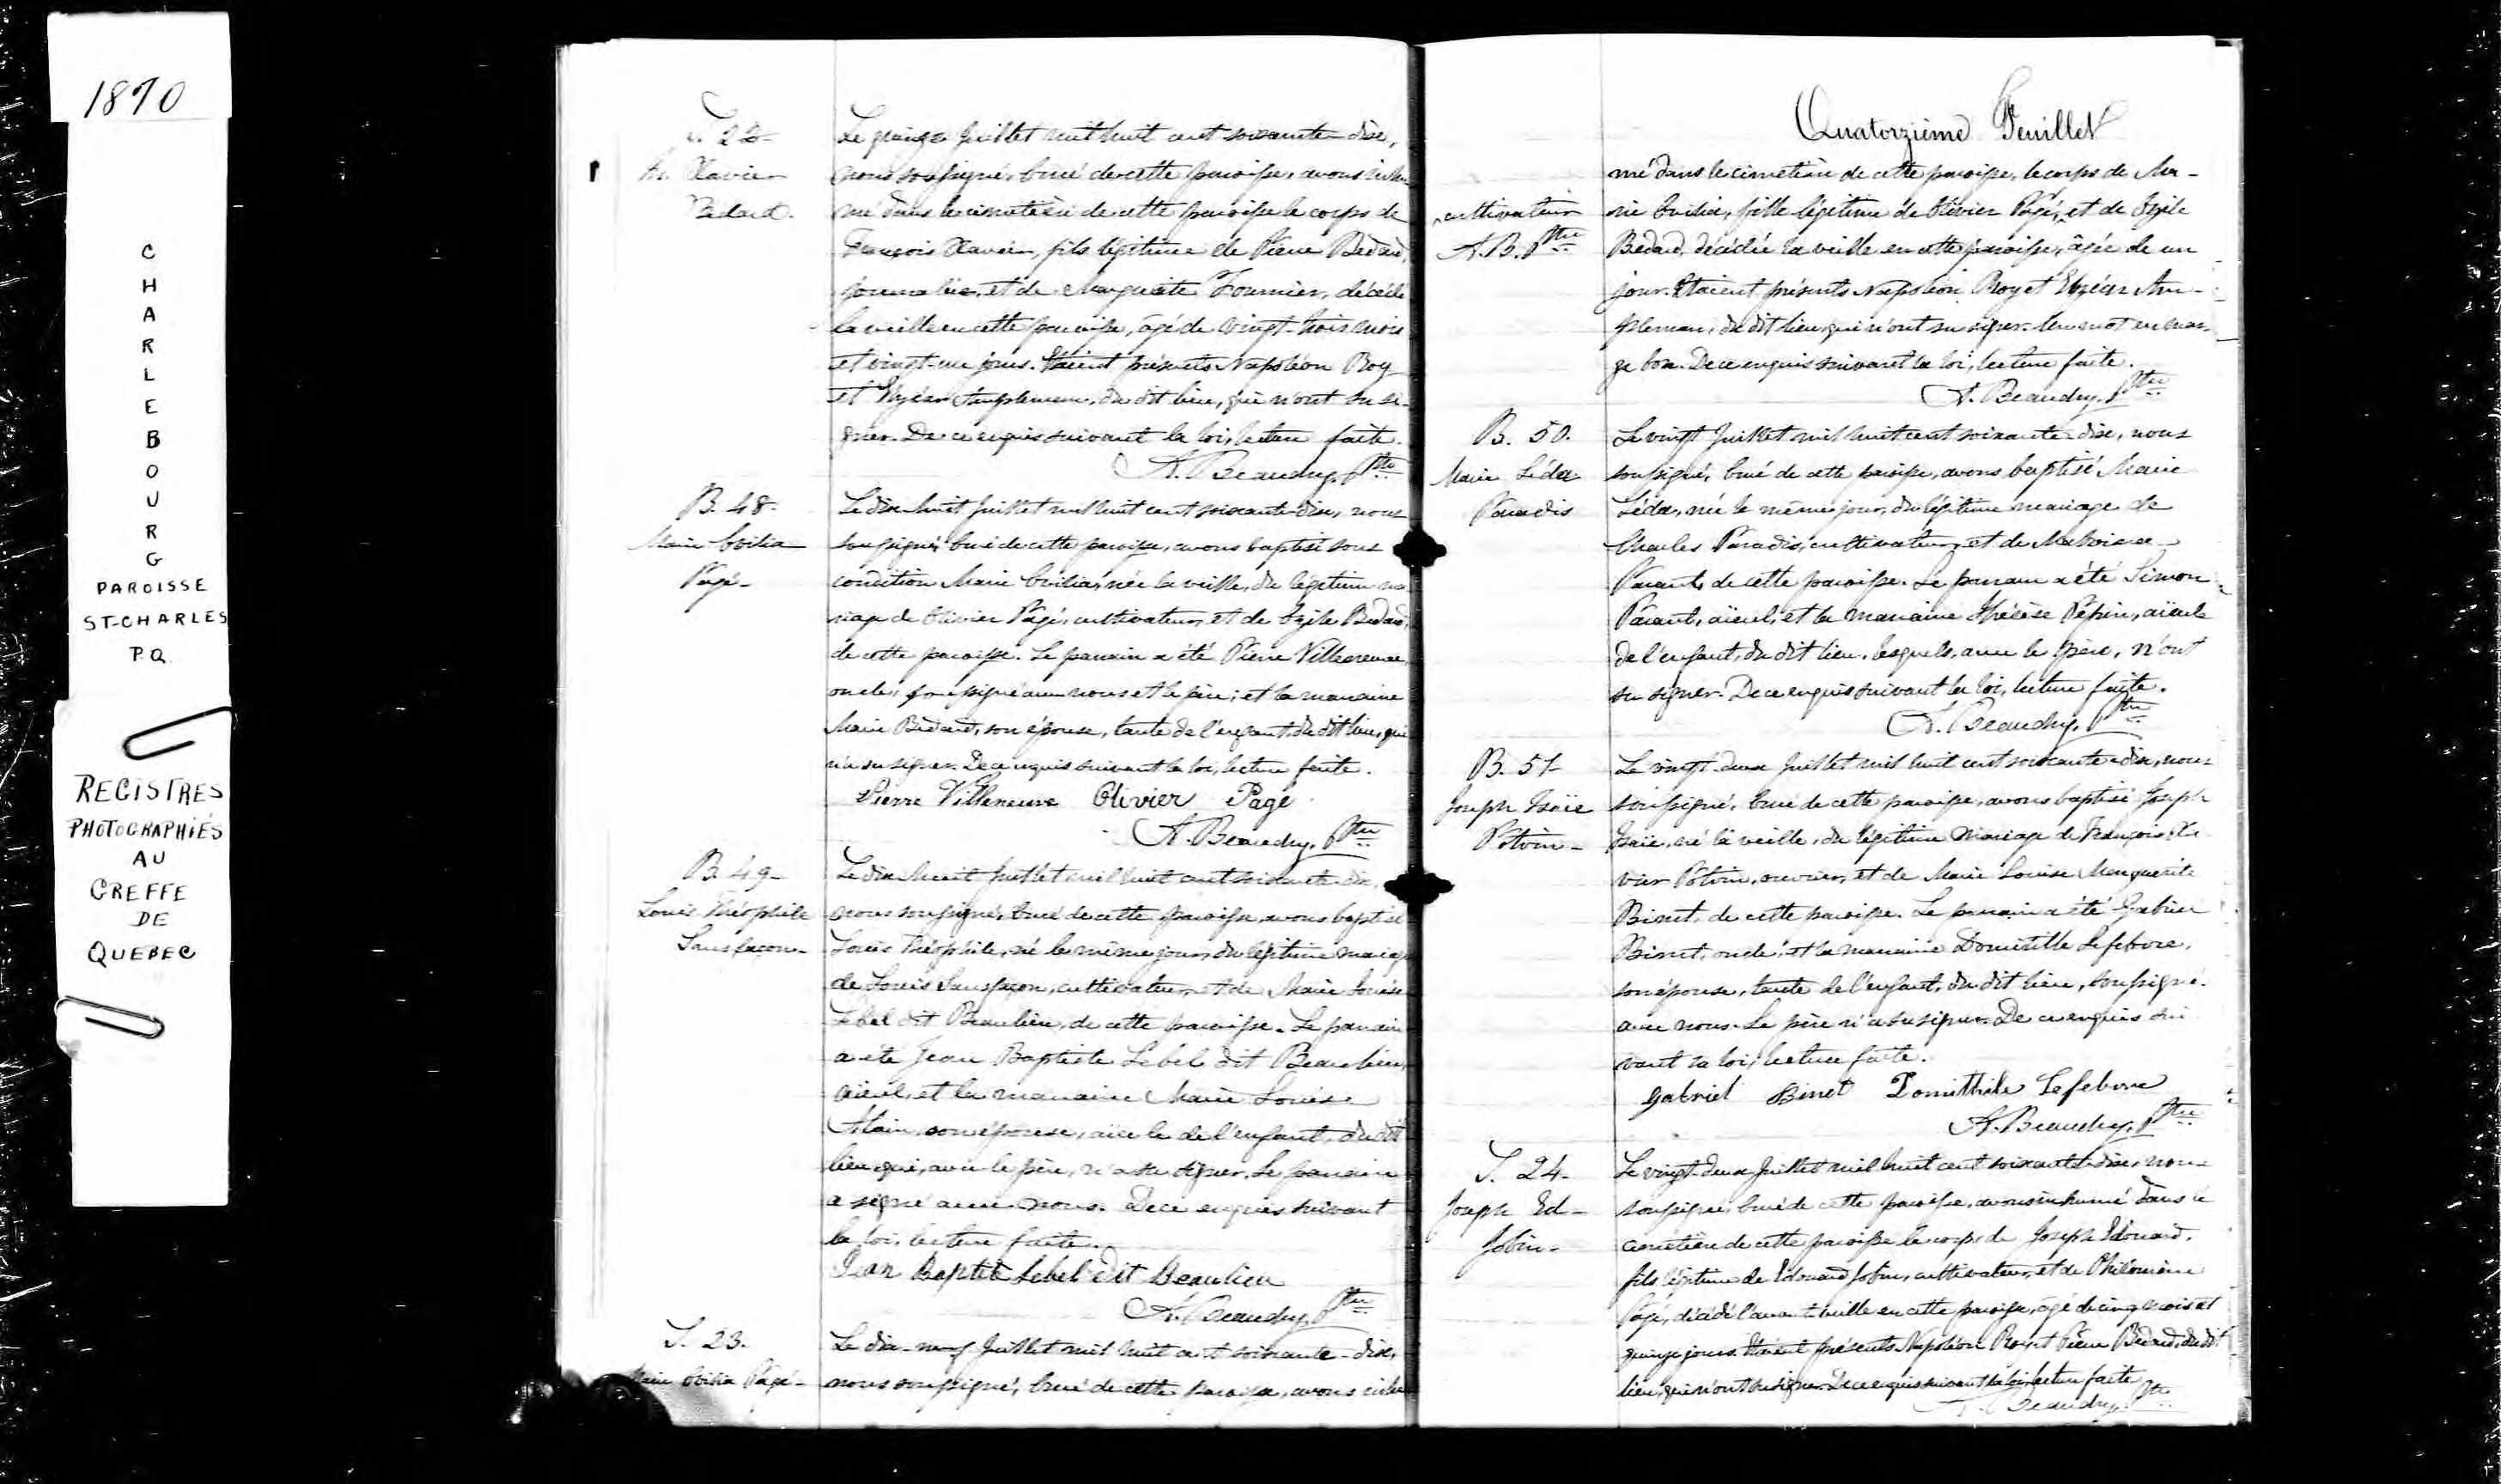 1870
C
H
A
R
L
E
B
O
U
R
G
PAROISSE
ST-CHARLES
P.Q.
REGISTRES
PHOTOGRAPHIÉS
AU
GREFFE
DE
QUEBEC
S. 22-
Xavier
Bedard.
Le quinze Juillet mil huit cent soixante-dix,
nous soussigné, Curé de cette paroisse, avons inhu-
mé dans le cimetière de cette paroisse le corps de
François Xavier, fils légitime de Pierre Bedard,
journalier, et de Marguerite Fournier, décédé
la veille en cette paroisse, âgé de vingt-trois mois
et vingt-un jours. Etaient présents Napoléon Roy
et Elzéar Ampleman, du dit lieu, qui n'ont su si-
gner. De ce enquis suivant la loi, lecture faite.
A. Beaudry, Ptre
B. 48-
Marie
Pagé-
Le dix-huit Juillet mil huit cent soixante-dix, nous
soussigné, Curé de cette paroisse, avons baptisé sous
condition Marie née la veille, du légitime ma-
riage de Olivier Pagé, cultivateur, et de Bedard,
de cette paroisse. Le parrain a été Pierre Villeneuve,
oncle, soussigné avec nous et le père; et la marraine
Marie Bedard, son épouse, tante de l'enfant, du dit lieu, qui
n'a su signer. De ce enquis suivant la loi, lecture faite.
Pierre Villeneuve Olivier Pagé
A. Beaudry, Ptre
B. 49-
Louis Théophile
Sansfaçon-
Le dix-huit Juillet mil huit cent soixante-dix,
nous soussigné, Curé de cette paroisse, avons baptisé
Louis Théophile, né le même jour, du légitime mariage
de Louis Sansfaçon, cultivateur, et de Marie Louise
Lebel dit Beaulieu, de cette paroisse. Le parrain
a été Jean Baptiste Lebel dit Beaulieu,
aïeul, et la marraine Marie Louise
Alain, son épouse, aïeule de l'enfant, du dit
lieu, qui, avec le père, n'a su signer. Le parrain
a signé avec nous. De ce enquis suivant
la loi, lecture faite.
Jean Baptite Lebel dit Beaulieu
A. Beaudry, Ptre
S. 23.
Marie Pagé-
Le dix-neuf Juillet mil huit cent soixante-dix,
nous soussigné, Curé de cette paroisse, avons inhu
Quatorzième Feuillet
cultivateur
A. B. Ptre
mé dans le cimetière de cette paroisse, le corps de Ma-
rie fille légitime de Olivier Pagé, et de
Bedard, décédée la veille en cette paroisse, âgée de un
jour. Etaient présents Napoléon Roy et Elzéar Am-
pleman, du dit lieu, qui n'ont su signer. Un mot en mar-
ge bon. De ce enquis suivant la loi, lecture faite.
A. Beaudry, Ptre
B. 50.
Marie Léda
Paradis
Le vingt Juillet mil huit cent soixante-dix, nous
soussigné, Curé de cette paroisse, avons baptisé Marie
Léda, née le même jour, du légitime mariage de
Charles Paradis, cultivateur, et de
Parant, de cette paroisse. Le parrain a été Simon
Parant, aïeul, et la marraine Thérèse Pépin, aïeule
de l'enfant, du dit lieu, lesquels, avec le père, n'ont
su signer. De ce enquis suivant la loi, lecture faite.
A. Beaudry, Ptre
B. 51-
Joseph Isaïe
Potvin-
Le vingt-deux Juillet mil huit cent soixante-dix, nous
soussigné, Curé de cette paroisse, avons baptisé Joseph
Isaïe, né la veille, du légitime mariage de François Xa-
vier Potvin, ouvrier, et de Marie Louise Marguerite
Binet, de cette paroisse. Le parrain a été Gabriel
Binet, oncle, et la marraine Domitille Lefebvre,
son épouse, tante de l'enfant, du dit lieu, soussignés
avec nous. Le père n'a su signer. De ce enquis sui
vant la loi, lecture faite.
Gabriel Binet Domithile Lefebvre
A. Beaudry, Ptre
S. 24-
Joseph Ed-
Jobin-
Le vingt-deux Juillet mil huit cent soixante-dix, nous
soussigné, Curé de cette paroisse, avons inhumé dans le
cimetière de cette paroisse le corps de Joseph Edouard,
fils légitime de Edouard Jobin, cultivateur, et de Philomène
Pagé, décédé l'avant-veille en cette paroisse, âgé de cinq mois et
quinze jours. Etaient présents Napoléon Roy et Pierre Bedard, du dit
lieu, qui n'ont su signer. De ce enquis suivant la loi, lecture faite.
A. Beaudry, Ptre